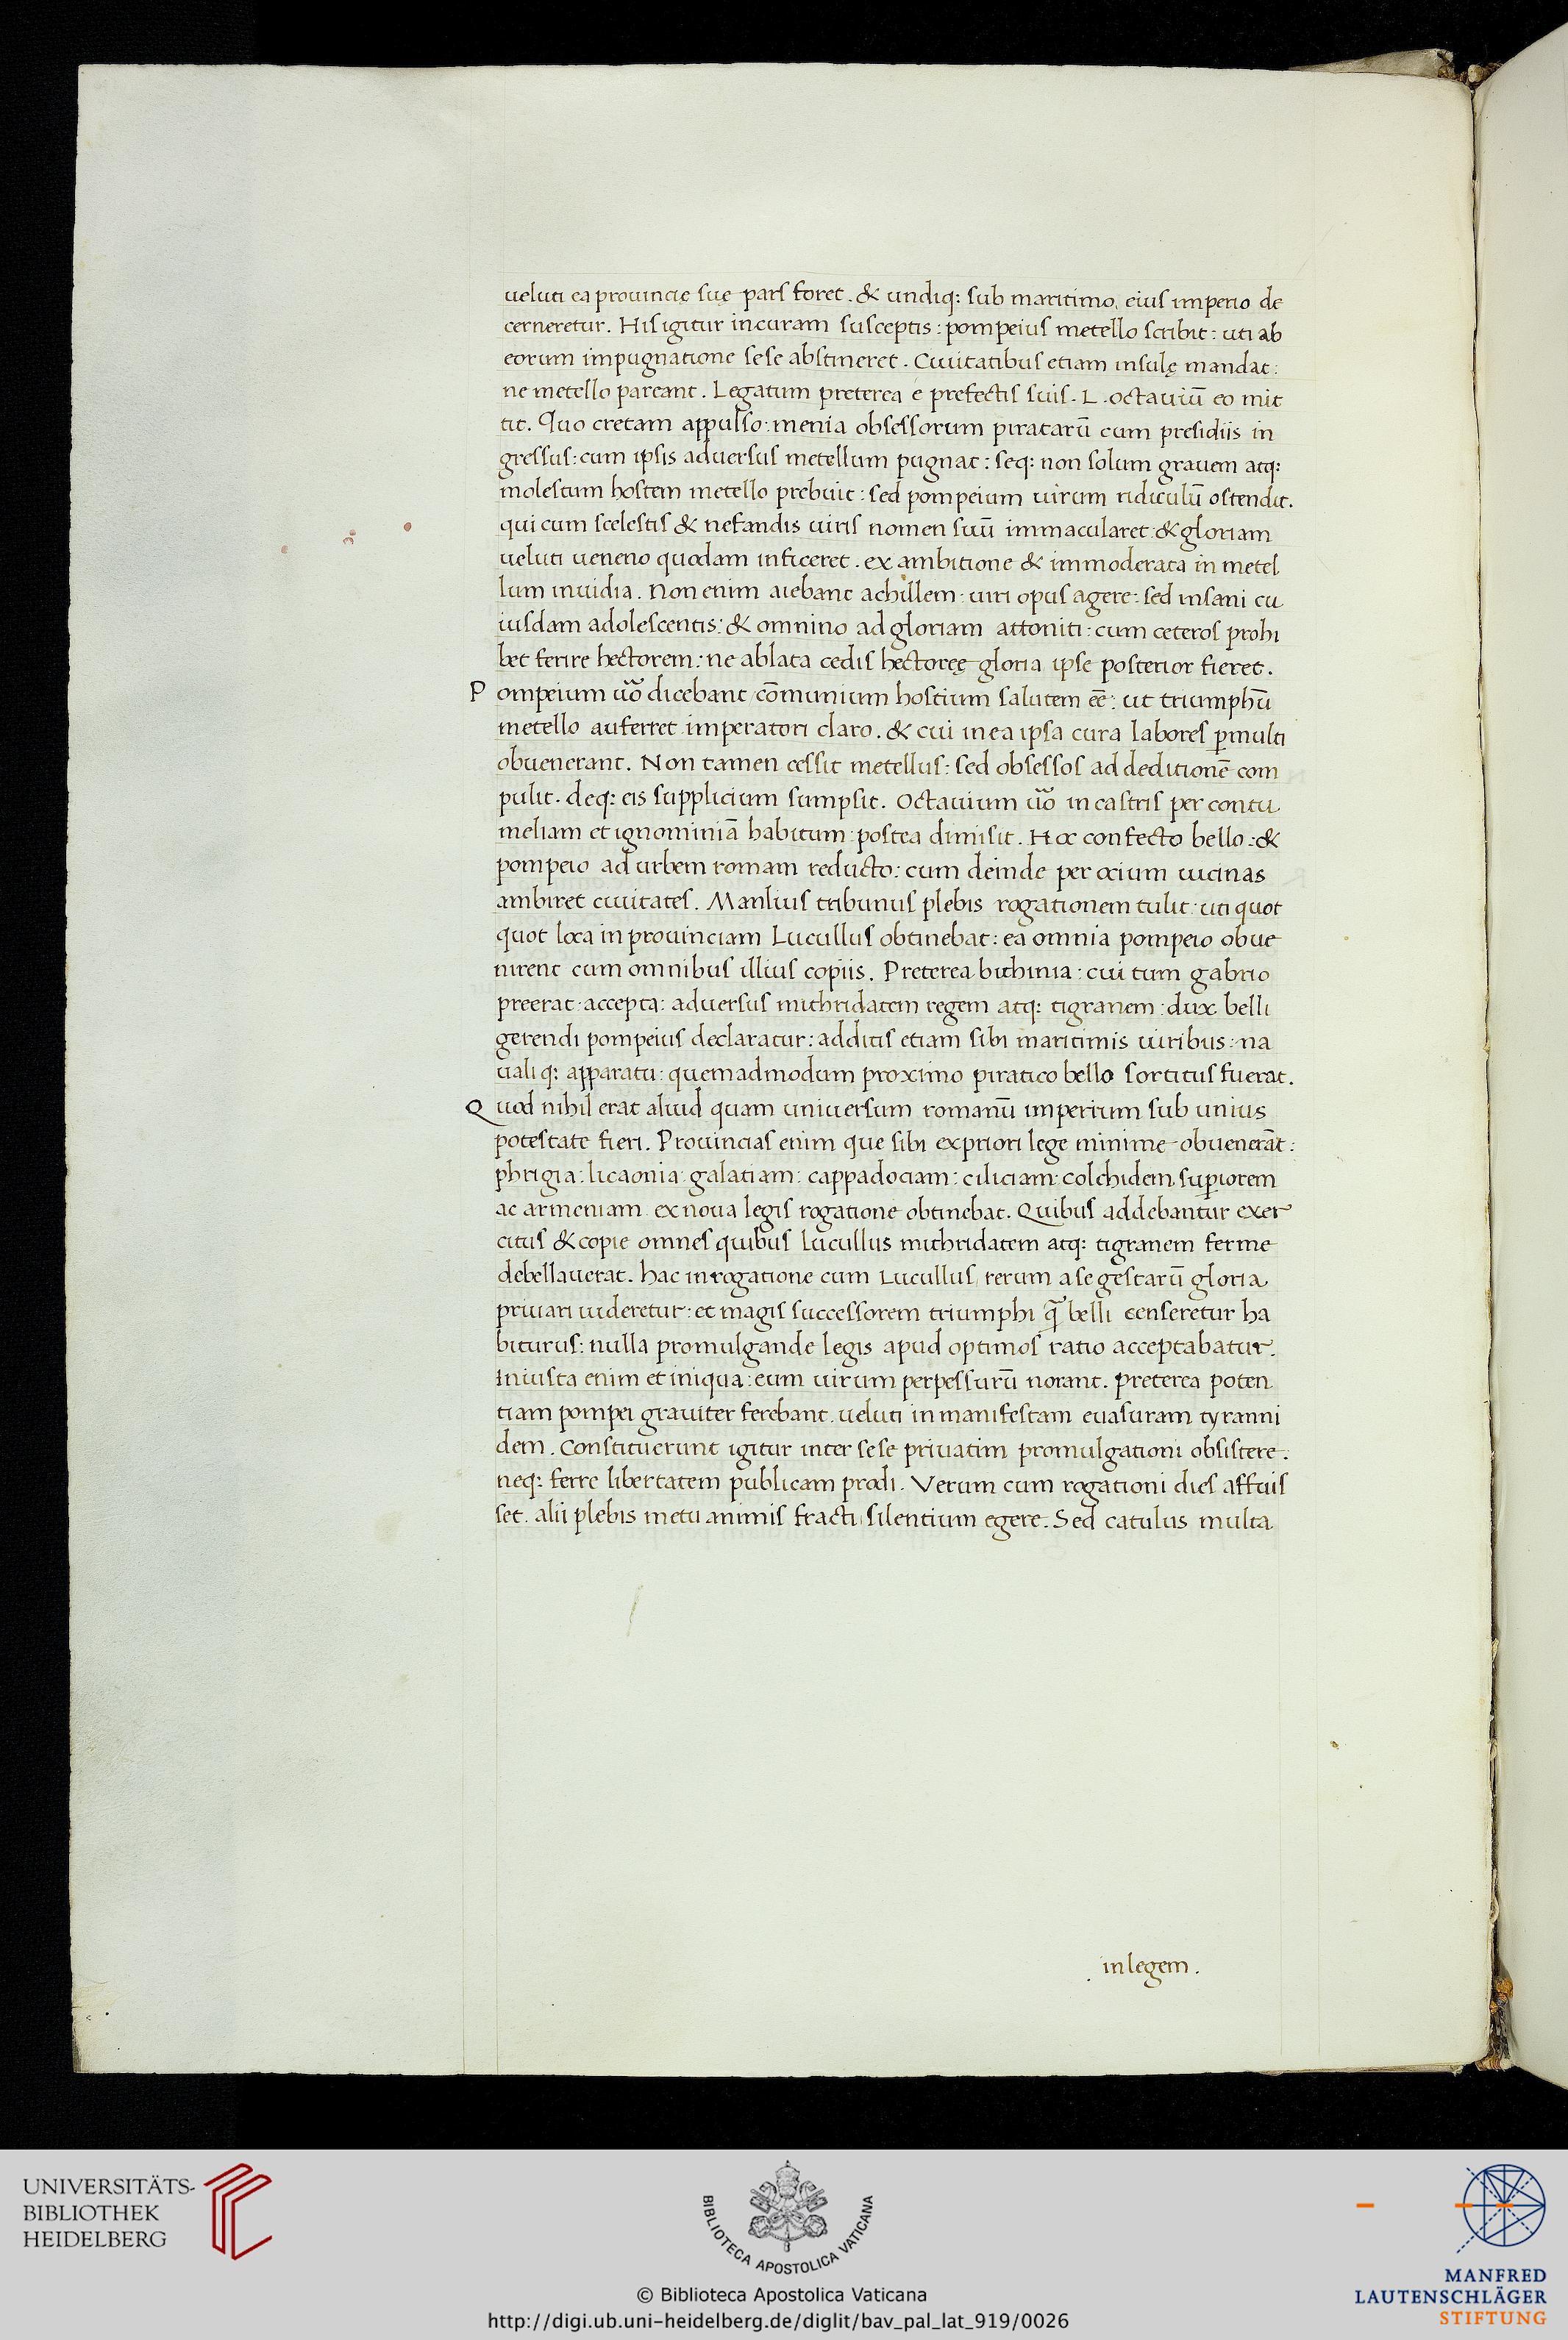 ueluti ea prouincię suę pars foret. & undiq: sub maritimo, eius imperio de
cerneretur. His igitur in curam susceptis: pompeius metello scribit: uti ab
eorum impugnatione sese abstineret. Ciuitatibus etiam insulę mandat:
ne metello pareant. Legatum preterea e prefectis suis. L. octauiū eo mit
tit. Quo cretam appulso: menia obsessorum piratarū cum presidiis in
gressus: cum ipsis aduersus metellum pugnat: seq: non solum grauem atq:
molestum hostem metello prebuit: sed pompeium uirum ridiculū ostendit.
qui cum scelestis & nefandis uiris nomen suū immacularet: & gloriam
ueluti ueneno quodam inficeret. ex ambitione & immoderata in metel
lum inuidia. Non enim aiebant achillem uiri opus agere: sed insani cu
iusdam adolescentis: & omnino ad gloriam attoniti: cum ceteros prohi
bet ferire hectorem: ne ablata cedis hectoreę gloria ipse posterior fieret.
Pompeium ūo dicebant cōmunium hostium salutem eē: ut triumphū
metello auferret imperatori claro. & cui in ea ipsa cura labores ꝑmulti
obuenerant. Non tamen cessit metellus: sed obsessos ad deditionē com
pulit. deq: eis supplicium sumpsit. Octauium ūo in castris per contu
meliam et ignominiā habitum: postea dimisit. Hoc confecto bello: &
pompeio ad urbem romam reducto: cum deinde per ocium uicinas
ambiret ciuitates. Manlius tribunus plebis rogationem tulit: uti quot
quot loca in prouinciam Lucullus obtinebat: ea omnia pompeio obue
nirent cum omnibus illius copiis. Preterea bithinia: cui tum gabrio
preerat accepta: aduersus mithridatem regem atq: tigranem: dux belli
gerendi pompeius declaratur: additis etiam sibi maritimis uiribus: na
uali q: apparatu: quemadmodum proximo piratico bello sortitus fuerat.
Quod nihil erat aliud quam uniuersum romanū imperium sub unius
potestate fieri. Prouincias enim que sibi ex priori lege minime obuenerāt:
phrigia: licaonia: galatiam: cappadociam: ciliciam: colchidem, suꝑiorem
ac armeniam ex noua legis rogatione obtinebat. Quibus addebantur exer
citus & copie omnes quibus Lucullus mithridatem atq: tigranem ferme
debellauerat. hac in rogatione cum Lucullus rerum a se gestarū gloria
priuari uideretur: et magis successorem triumphi q̄ belli censeretur ha
biturus: nulla promulgande legis apud optimos ratio acceptabatur.
Iniusta enim et iniqua: eum uirum perpessurū norant. preterea poten
tiam pompei grauiter ferebant. ueluti in manifestam euasuram tyranni
dem. Constituerunt igitur inter sese priuatim promulgationi obsistere:
neq: ferre libertatem publicam prodi. Verum cum rogationi dies affuis
set. alii plebis metu animis fracti silentium egere. Sed catulus multa
in legem.
UNIVERSITÄTS-
BIBLIOTHEK
HEIDELBERG
BIBLIOTECA APOSTOLICA VATICANA
© Biblioteca Apostolica Vaticana
http://digi.ub.uni-heidelberg.de/diglit/bav_pal_lat_919/0026
MANFRED
LAUTENSCHLÄGER
STIFTUNG